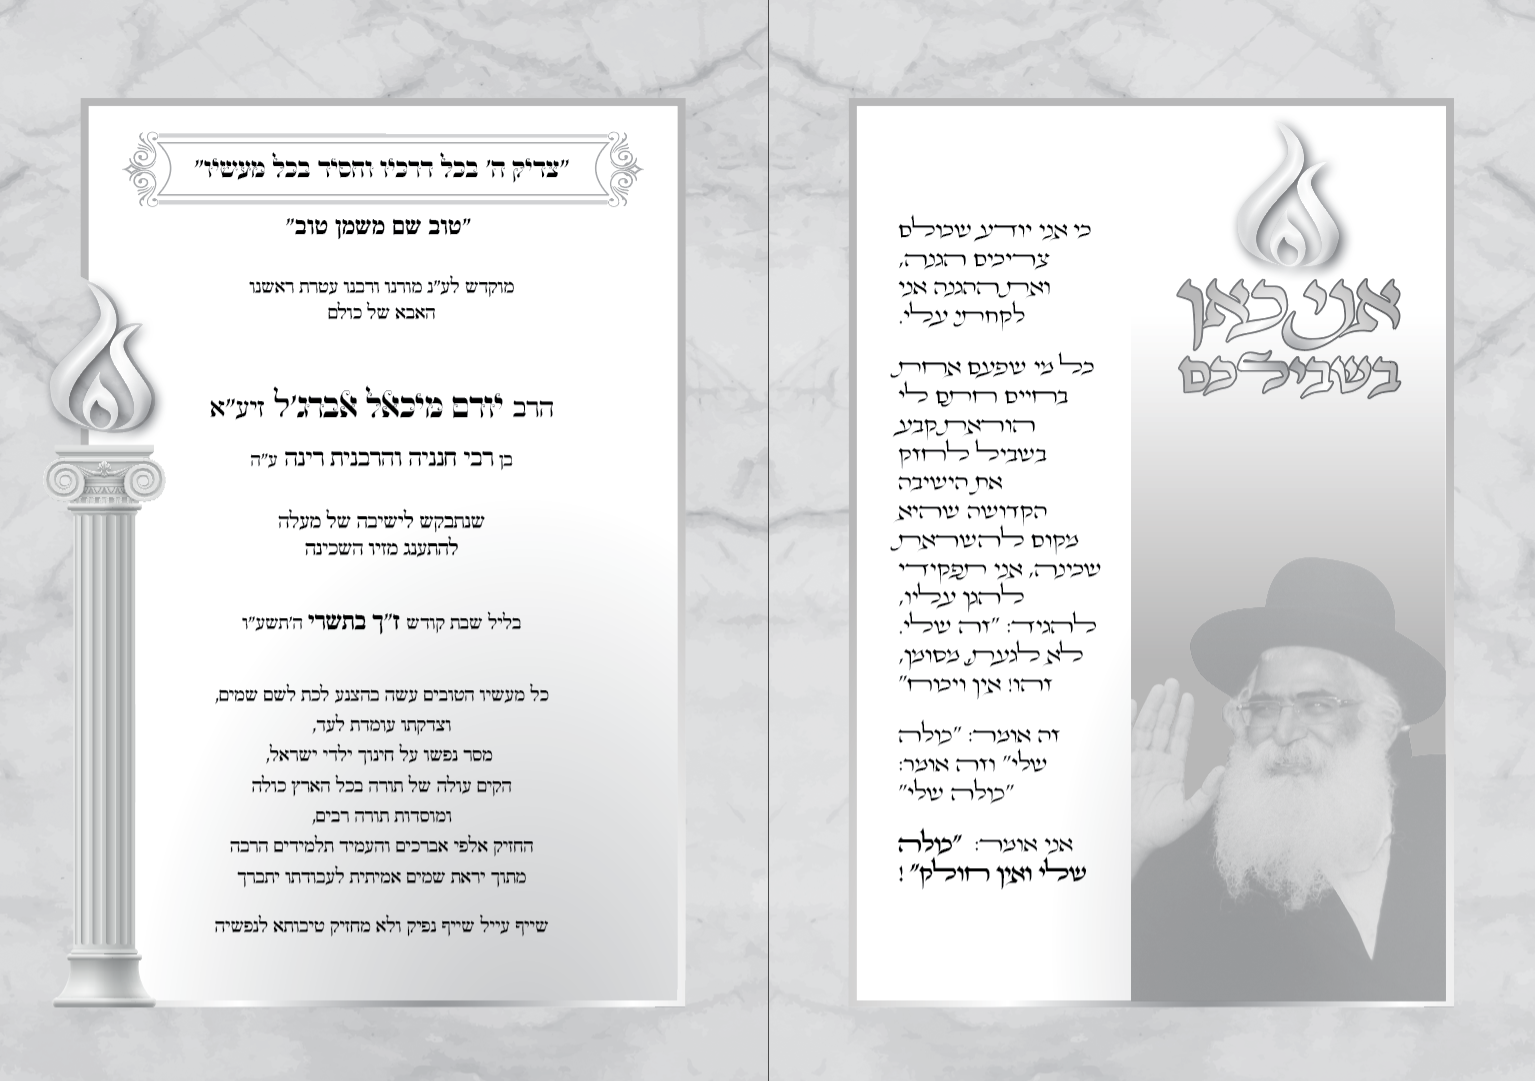 אני כאן
בשבילכם
כי אני יודע שכולם
צריכים הגנה,
ואת ההגנה אני
לקחתי עלי.
כל מי שפעם אחת
בחיים חתם לי
הוראת קבע
בשביל לחזק
את הישיבה
הקדושה שהיא
מקום להשראת
שכינה, אני תפקידי
להגן עליו,
להגיד: "זה שלי.
לא לגעת, מסומן,
זהו! אין ויכוח"
זה אומר: "כולה
שלי" וזה אומר:
"כולה שלי"
אני אומר: "כולה
שלי ואין חולק"!
"צדיק ה' בכל דרכיו וחסיד בכל מעשיו"
"טוב שם משמן טוב"
מוקדש לע"נ מורנו ורבנו עטרת ראשנו
האבא של כולם
הרב יורם מיכאל אברג'ל זיע"א
בן רבי חנניה והרבנית רינה ע"ה
שנתבקש לישיבה של מעלה
להתענג מזיו השכינה
בליל שבת קודש ז"ך בתשרי ה'תשע"ו
כל מעשיו הטובים עשה בהצנע לכת לשם שמים,
וצדקתו עומדת לעד,
מסר נפשו על חינוך ילדי ישראל,
הקים עולה של תורה בכל הארץ כולה
ומוסדות תורה רבים,
החזיק אלפי אברכים והעמיד תלמידים הרבה
מתוך יראת שמים אמיתית לעבודתו יתברך
שייף עייל שייף נפיק ולא מחזיק טיבותא לנפשיה